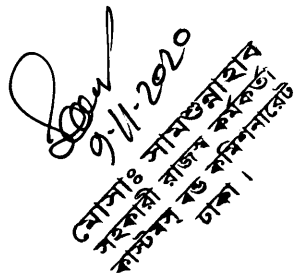 9-11-2020
মোসাঃ সামশুন্নাহার
সহকারী রাজস্ব কর্মকর্তা
কাস্টমস্ বন্ড কমিশনারেট
ঢাকা।